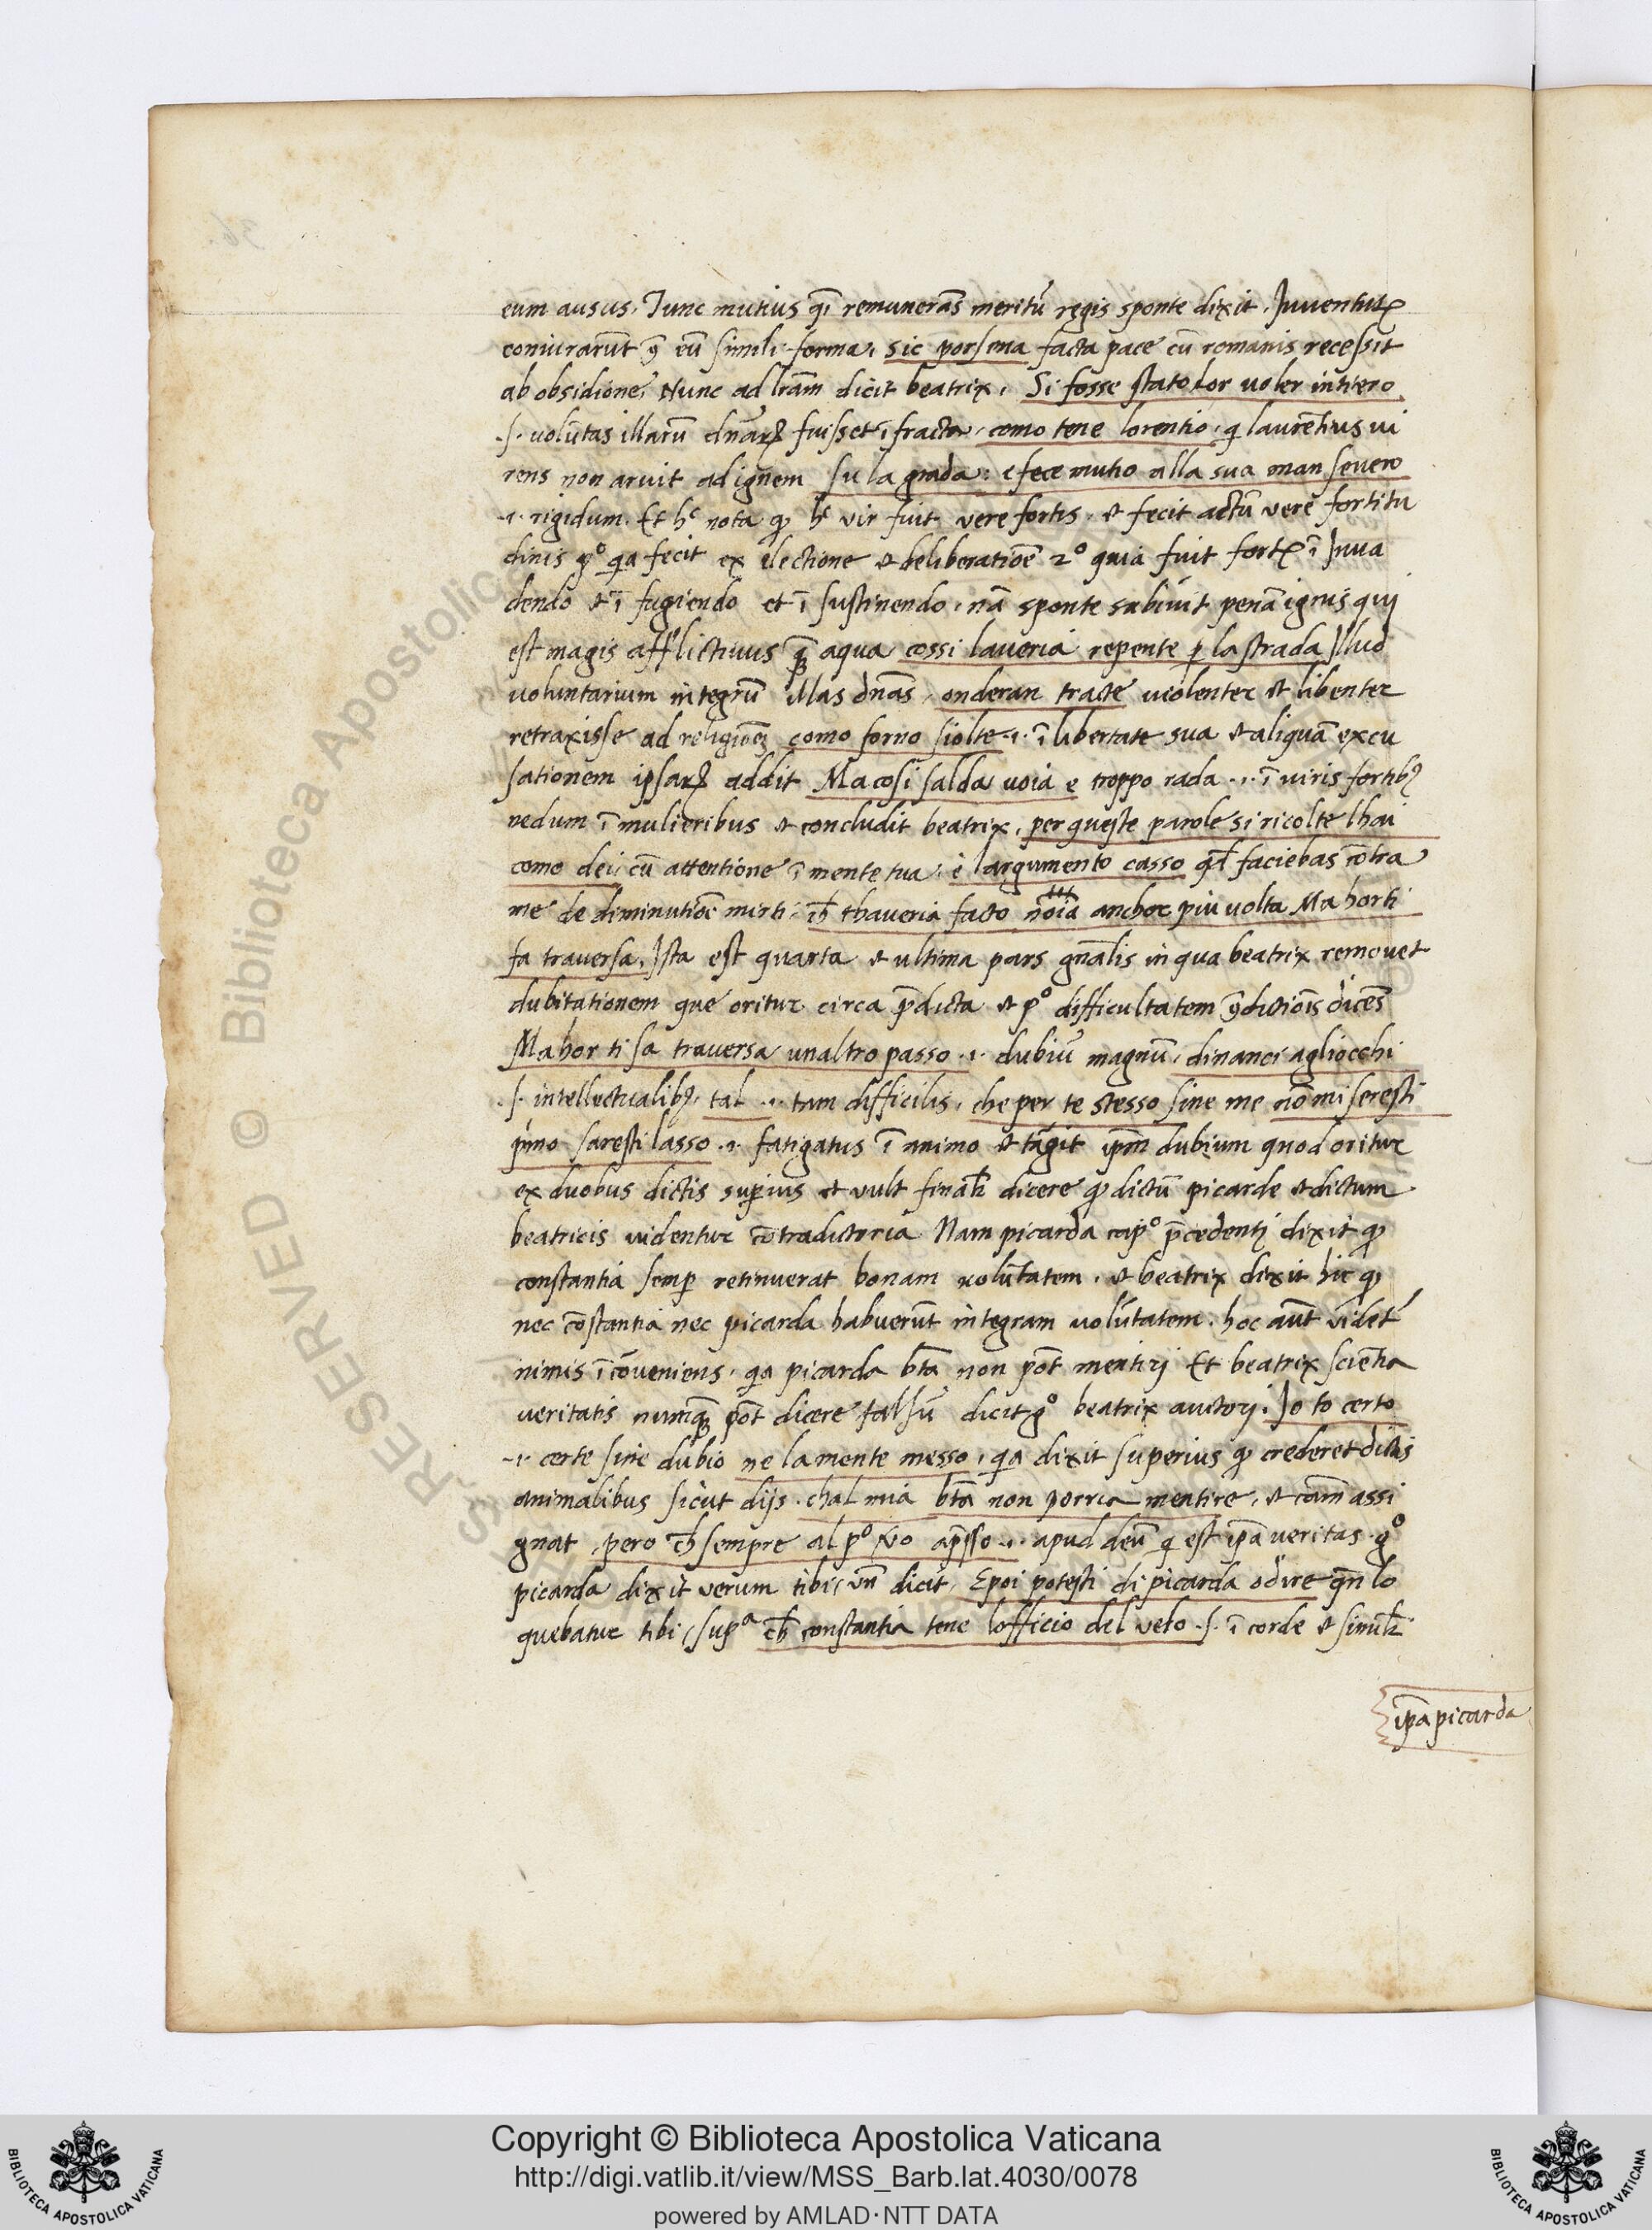 eum ausus. Tunc mutius q̄i remunerās meritū regis sponte dixit. Juventutꝭ
coniurarūt ꝯ eū simili forma. sic porsena facta pace cū romanis recessit
ab obsidione. Nunc ad lr̄am dicit beatrix. Si fosse stato lor voler intiero
.s. volūtas illarū dn̄aꝝ fuisset īfracta. como tene lorentio. qi laurētius vi
rens non aruit ad ignem su la grada: e fece mutio alla sua man severo
.i. rigidum. Et hͨ nota ꝙ hͨ vir fuit vere fortis. et fecit actū vere fortitu
dinis pº qa fecit ex electione et deliberatiōe 2º quia fuit fortꝭ ī Inva
dendo et ī fugiendo et ī sustinendo. nā sponte subivit penā ignis qui
est magis afflictivus qꝫ aqua cossi laveria repente ꝑ la strada Illud
voluntarium integrū illas dn̄as. onderan tracte violenter et libenter
retraxisse ad religiōeꝫ como forno siolte .i. ī libertate sua et aliquā excu
sationem ipsaꝝ addit Ma cosi salda voia e troppo rada .i. ī viris fortibꝫ
nedum ī mulieribus et concludit beatrix. per queste parole si ricolte lhai
como dei. cū attentione ī mente tua. è largumento casso qd̄ faciebas cōtra
me de diminutiōe mirti. ch̄ thaveria facto noia anchor più volta Ma horti
fa traversa. Ista est quarta et ultima pars gn̄alis in qua beatrix removet
dubitationem que oritur circa p̄dicta et pº difficultatem ꝯdictiōis dicēs
Ma hor ti sa traversa unaltro passo .i. dubiū magnū. dinanci agliocchi
.s. intellectualibꝫ. tal .i. tam difficilis. che per te stesso sine me nō mi seresti
p̍mo saresti lasso .i. fatigatus ī animo et tāgit ip̄m dubium quod oritur
ex duobus dictis suꝑius et vult finalr̄ dicere ꝙ dictū picarde et dictum
beatricis videntur cōtradictoria Nam picarda capº p̄cedentj dixit ꝙ
constantia semꝑ retinuerat bonam volūtatem. et beatrix dixit hic ꝙ
nec cōstantia nec picarda habuerūt integram volūtatem. hoc aūt videt̄
nimis īcōveniens. qa picarda bt̄a non pōt mentirj Et beatrix sciētia
veritatis numqꝫ pōt dicere falsū dicit gº beatrix auctorj. Io to certo
.i. certe sine dubio ne la mente messo. qa dixit superius ꝙ crederet dictis
animalibus sicut dijs. chal mia bt̄a non porria mentire. et cām assi
gnat. pero ch̄ sempre al pº vo ap̄sso .i. apud deū qi est ip̄a veritas. gº
picarda dixit verum tibi. vn̄ dicit. E poi potesti di picarda odire qn̄ lo
quebatur tibi. supᵃ ch̄ constantia tene lofficio del velo .s. ī corde et simulr̄
ip̄a picarda
Copyright © Biblioteca Apostolica Vaticana
http://digi.vatlib.it/view/MSS_Barb.lat.4030/0078
powered by AMLAD·NTT DATA
BIBLIOTECA APOSTOLICA VATICANA
BIBLIOTECA APOSTOLICA VATICANA
RESERVED © Biblioteca Apostolica